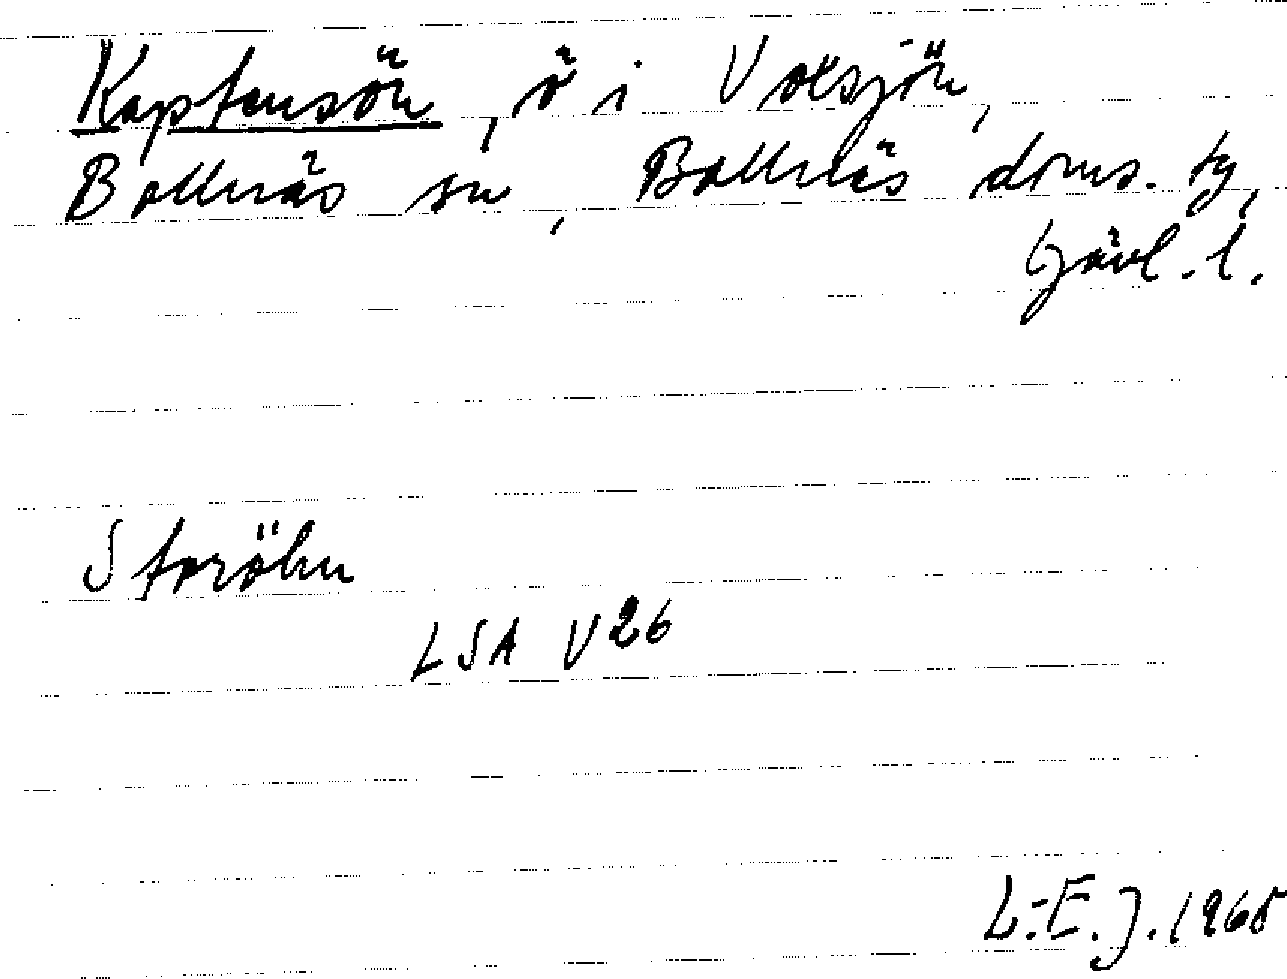 Kaptensön, ö i Voxsjön,
Bollnäs sn, Bollnäs doms. tg,
Gävl. l.
Storöhn
LSA V26
L.-E. J. 1965